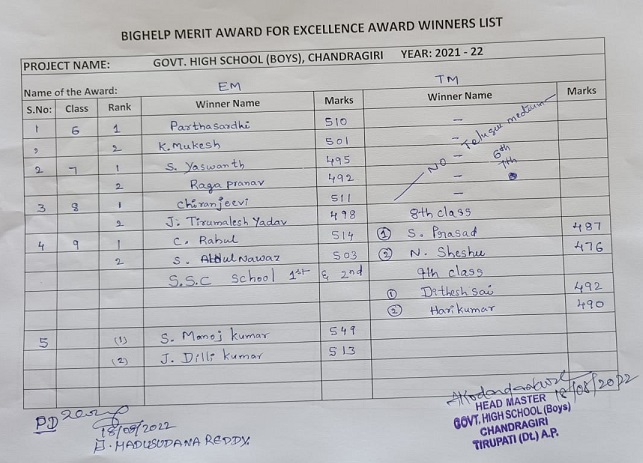 BIGHELP MERIT AWARD FOR EXCELLENCE AWARD WINNERS LIST
PROJECT NAME: GOVT. HIGH SCHOOL (BOYS), CHANDRAGIRI YEAR: 2021 - 22
Name of the Award: EM TM
S.No: Class Rank Winner Name Marks Winner Name Marks
1 6 1 Parthasardhi 510 -
2 K. Mukesh 501 -
2 7 1 S. Yaswanth 495 - NO Telugu medium 6th
2 Raga pranav 492 - 7th
3 8 1 chiranjeevi 511 -
2 J. Tirumalesh Yadav 498 8th class
4 9 1 C. Rahul 514 ① S. Prasad 487
2 S. Abdul Nawaz 503 ② N. Sheshu 476
S.S.C School 1st & 2nd 9th class
① Dithesh Sai 492
② Harikumar 490
5 (1) S. Manoj kumar 549
(2) J. Dilli kumar 513
PD
18/08/2022
MADUSUDANA REDDY.
18/08/2022
HEAD MASTER
GOVT. HIGH SCHOOL (Boys)
CHANDRAGIRI
TIRUPATI (DL) A.P.